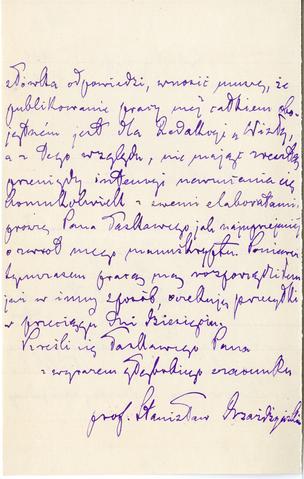 słówka odpowiedzi, wnosić muszę, że
publikowanie pracy mej całkiem obo-
jętném jest dla Redakcyi „Wisły”,
a z tego względu, nie mając zresztą
intencyi narzucania się
komukolwiek z swemi elaboratami,
proszę Pana Łaskawego jak najuprzejmiej
o zwrot mego manuskryptu. Ponieważ
tymczasem pracą mą rozporządziłem
już w inny sposób, oczekuję przesyłki
w przeciągu dni dziesięciu.
Kreśli się Łaskawego Pana
z wyrazem głębokiego szacunku
prof. Stanisław